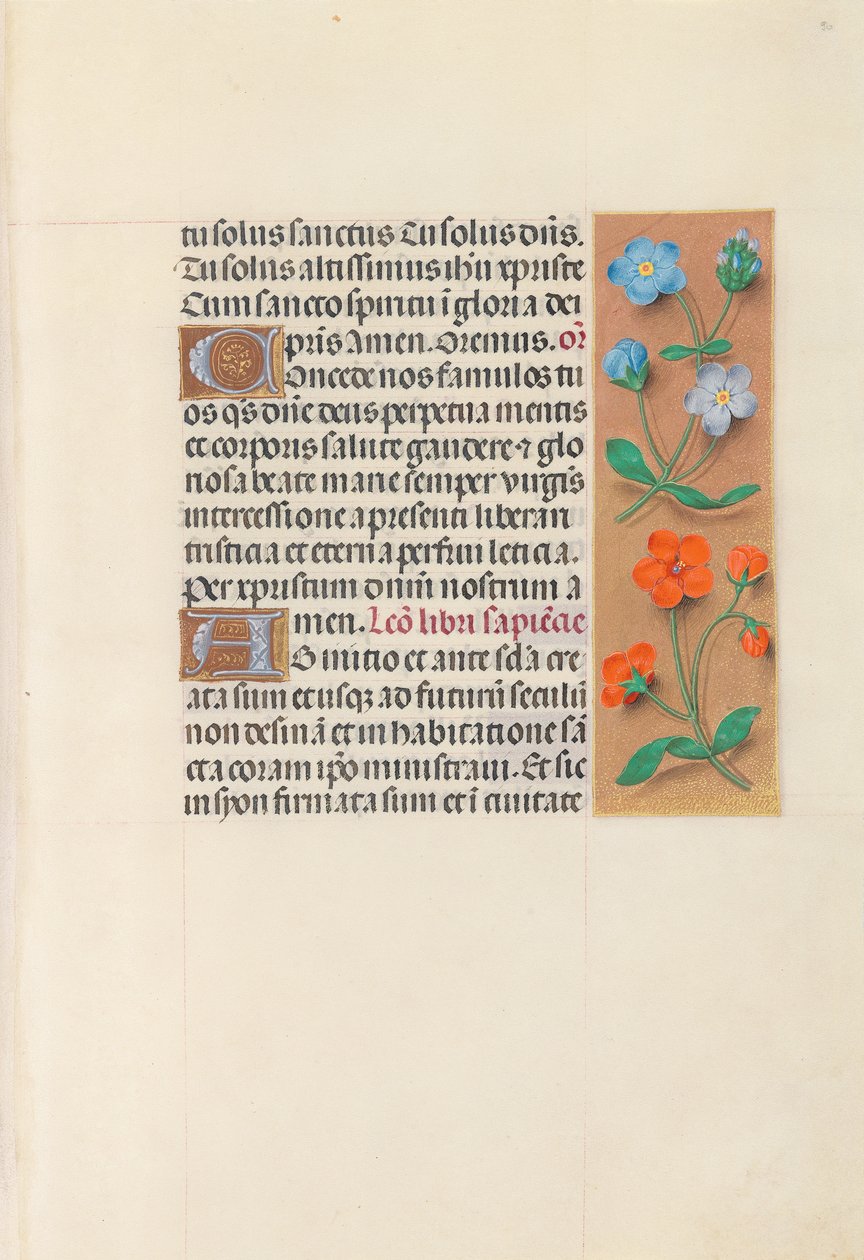 tu solus sanctus Tu solus dn̄s.
Tu solus altissimus ih̄u xpriste
Cum sancto spiritu ī gloria dei
pr̄is Amen. Oremus. or̄
Concede nos famulos tu
os qs̄ dn̄e deus perpetua mentis
et corporis salute gaudere ⁊ glo
riosa beate marie semper virgīs
intercessione a presenti liberari
tristicia et eterna perfrui leticia.
Per xpristum dnm̄ nostrum A
men. Lcō libri sapiēcie
AB initio et ante scl̄a cre
ata sum et usqꝫ ad futurū seculū
non desinā et in habitatione sā
cta coram ip̄o ministravi. Et sic
in syon firmata sum et ī civitate